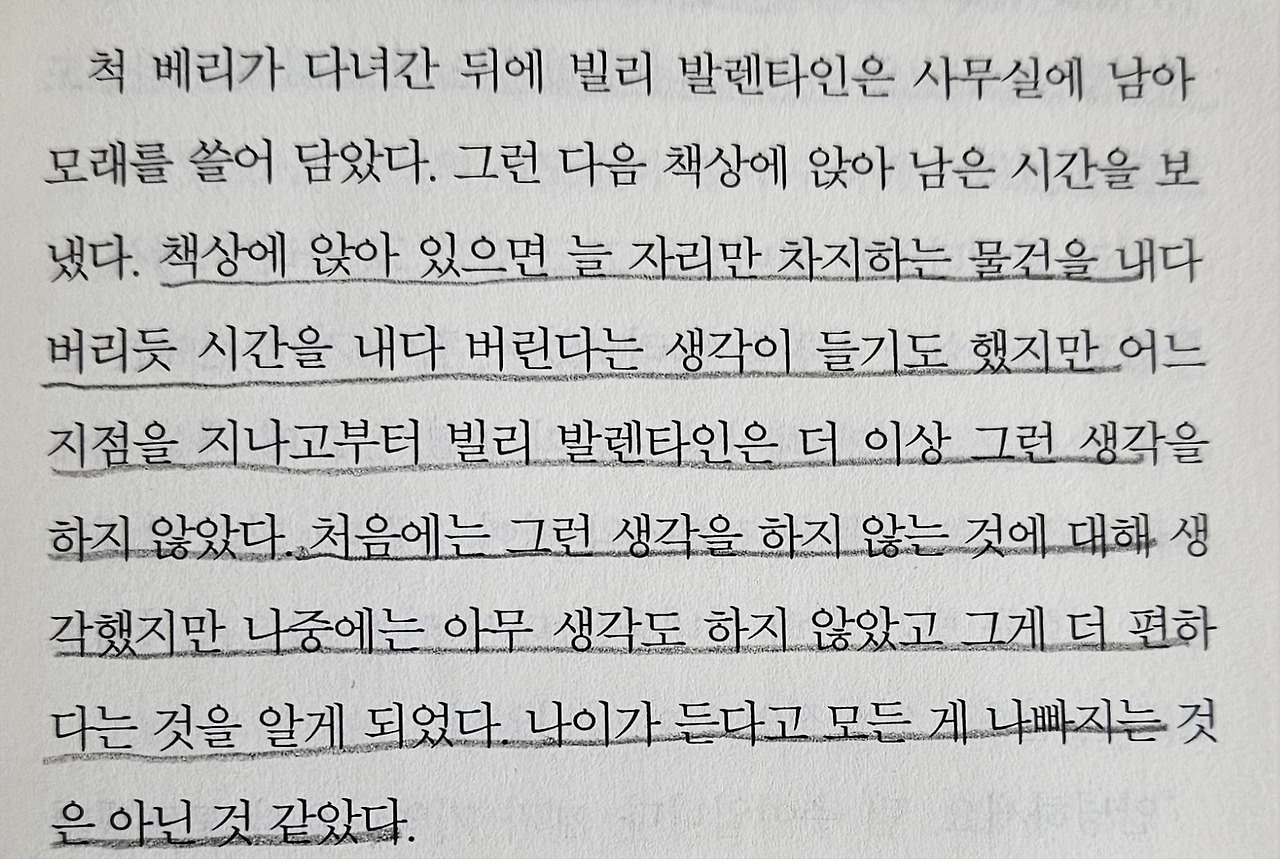 척 베리가 다녀간 뒤에 빌리 발렌타인은 사무실에 남아
모래를 쓸어 담았다. 그런 다음 책상에 앉아 남은 시간을 보
냈다. 책상에 앉아 있으면 늘 자리만 차지하는 물건을 내다
버리듯 시간을 내다 버린다는 생각이 들기도 했지만 어느
지점을 지나고부터 빌리 발렌타인은 더 이상 그런 생각을
하지 않았다. 처음에는 그런 생각을 하지 않는 것에 대해 생
각했지만 나중에는 아무 생각도 하지 않았고 그게 더 편하
다는 것을 알게 되었다. 나이가 든다고 모든 게 나빠지는 것
은 아닌 것 같았다.